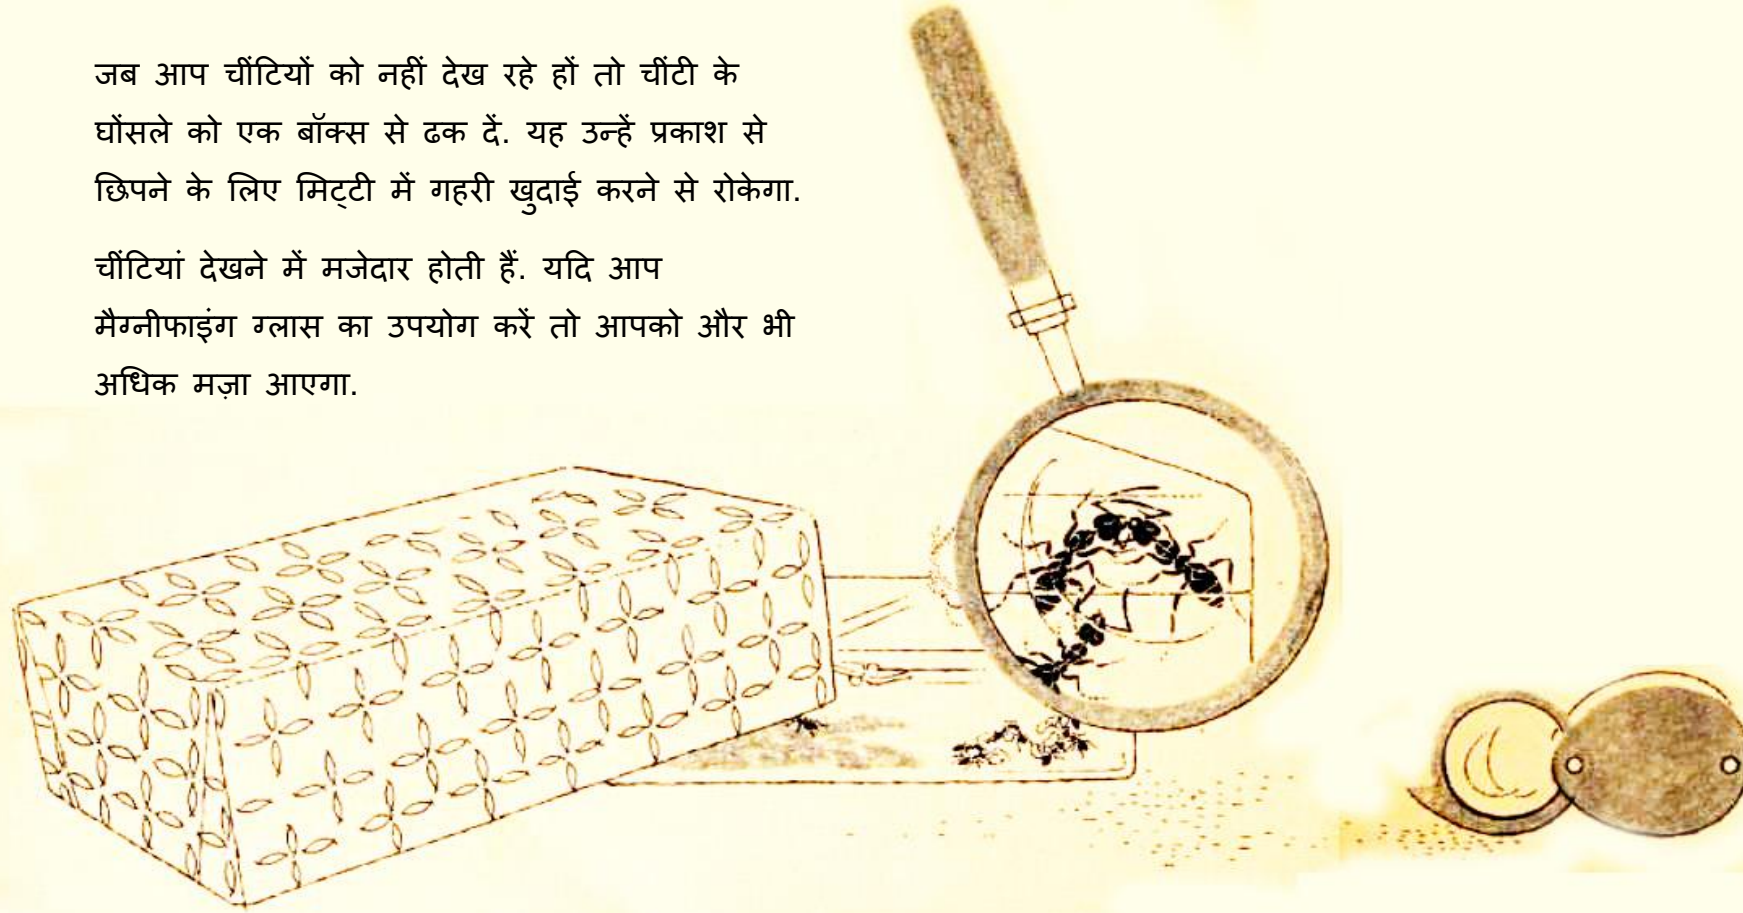 जब आप चींटियों को नहीं देख रहे हों तो चींटी के
घोंसले को एक बॉक्स से ढक दें. यह उन्हें प्रकाश से
छिपने के लिए मिट्टी में गहरी खुदाई करने से रोकेगा.
चींटियां देखने में मजेदार होती हैं. यदि आप
मैग्नीफाइंग ग्लास का उपयोग करें तो आपको और भी
अधिक मज़ा आएगा.